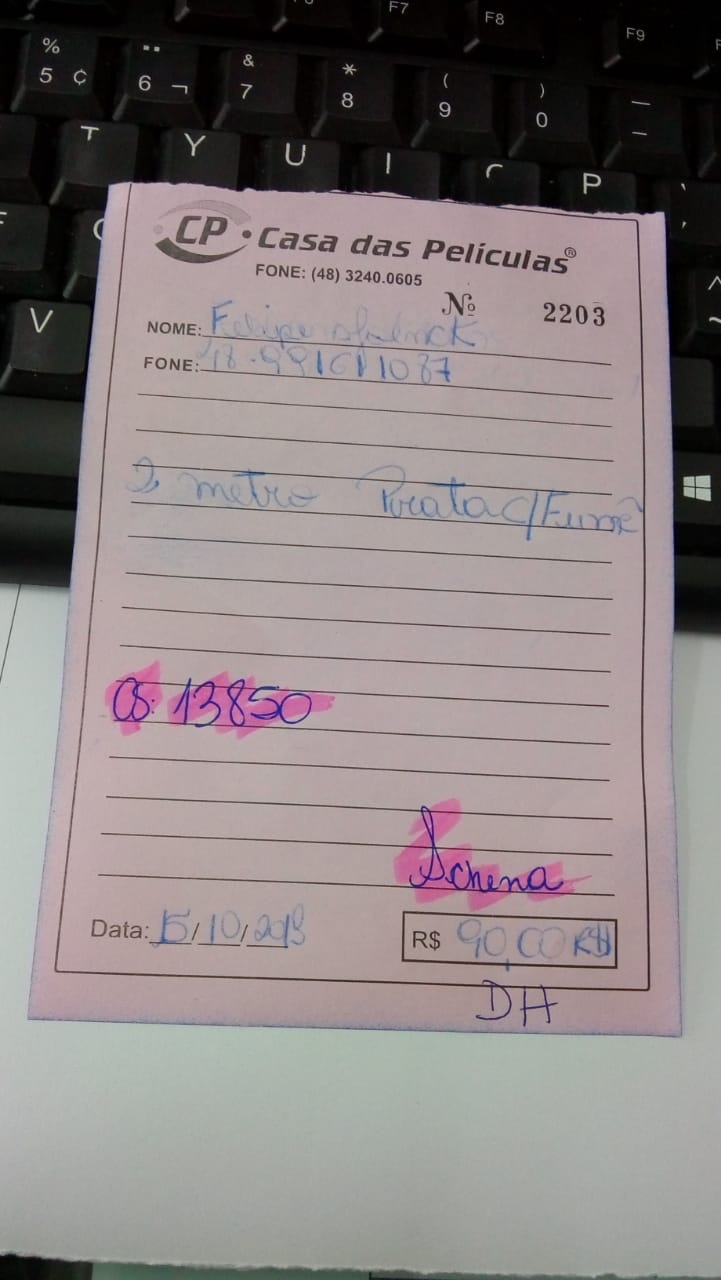 F7
F8
F9
% 5 ¢
¨ 6 ¬
& 7
* 8
( 9
) 0
— –
T
Y
U
I
P
V
CP • Casa das Películas®
FONE: (48) 3240.0605
Nº 2203
NOME: Felipe
FONE: 48.991611087
2 metro Prata c/Fumê
OS: 13850
Schena
Data: 15/10/2019
R$ 90,00 R$
DH